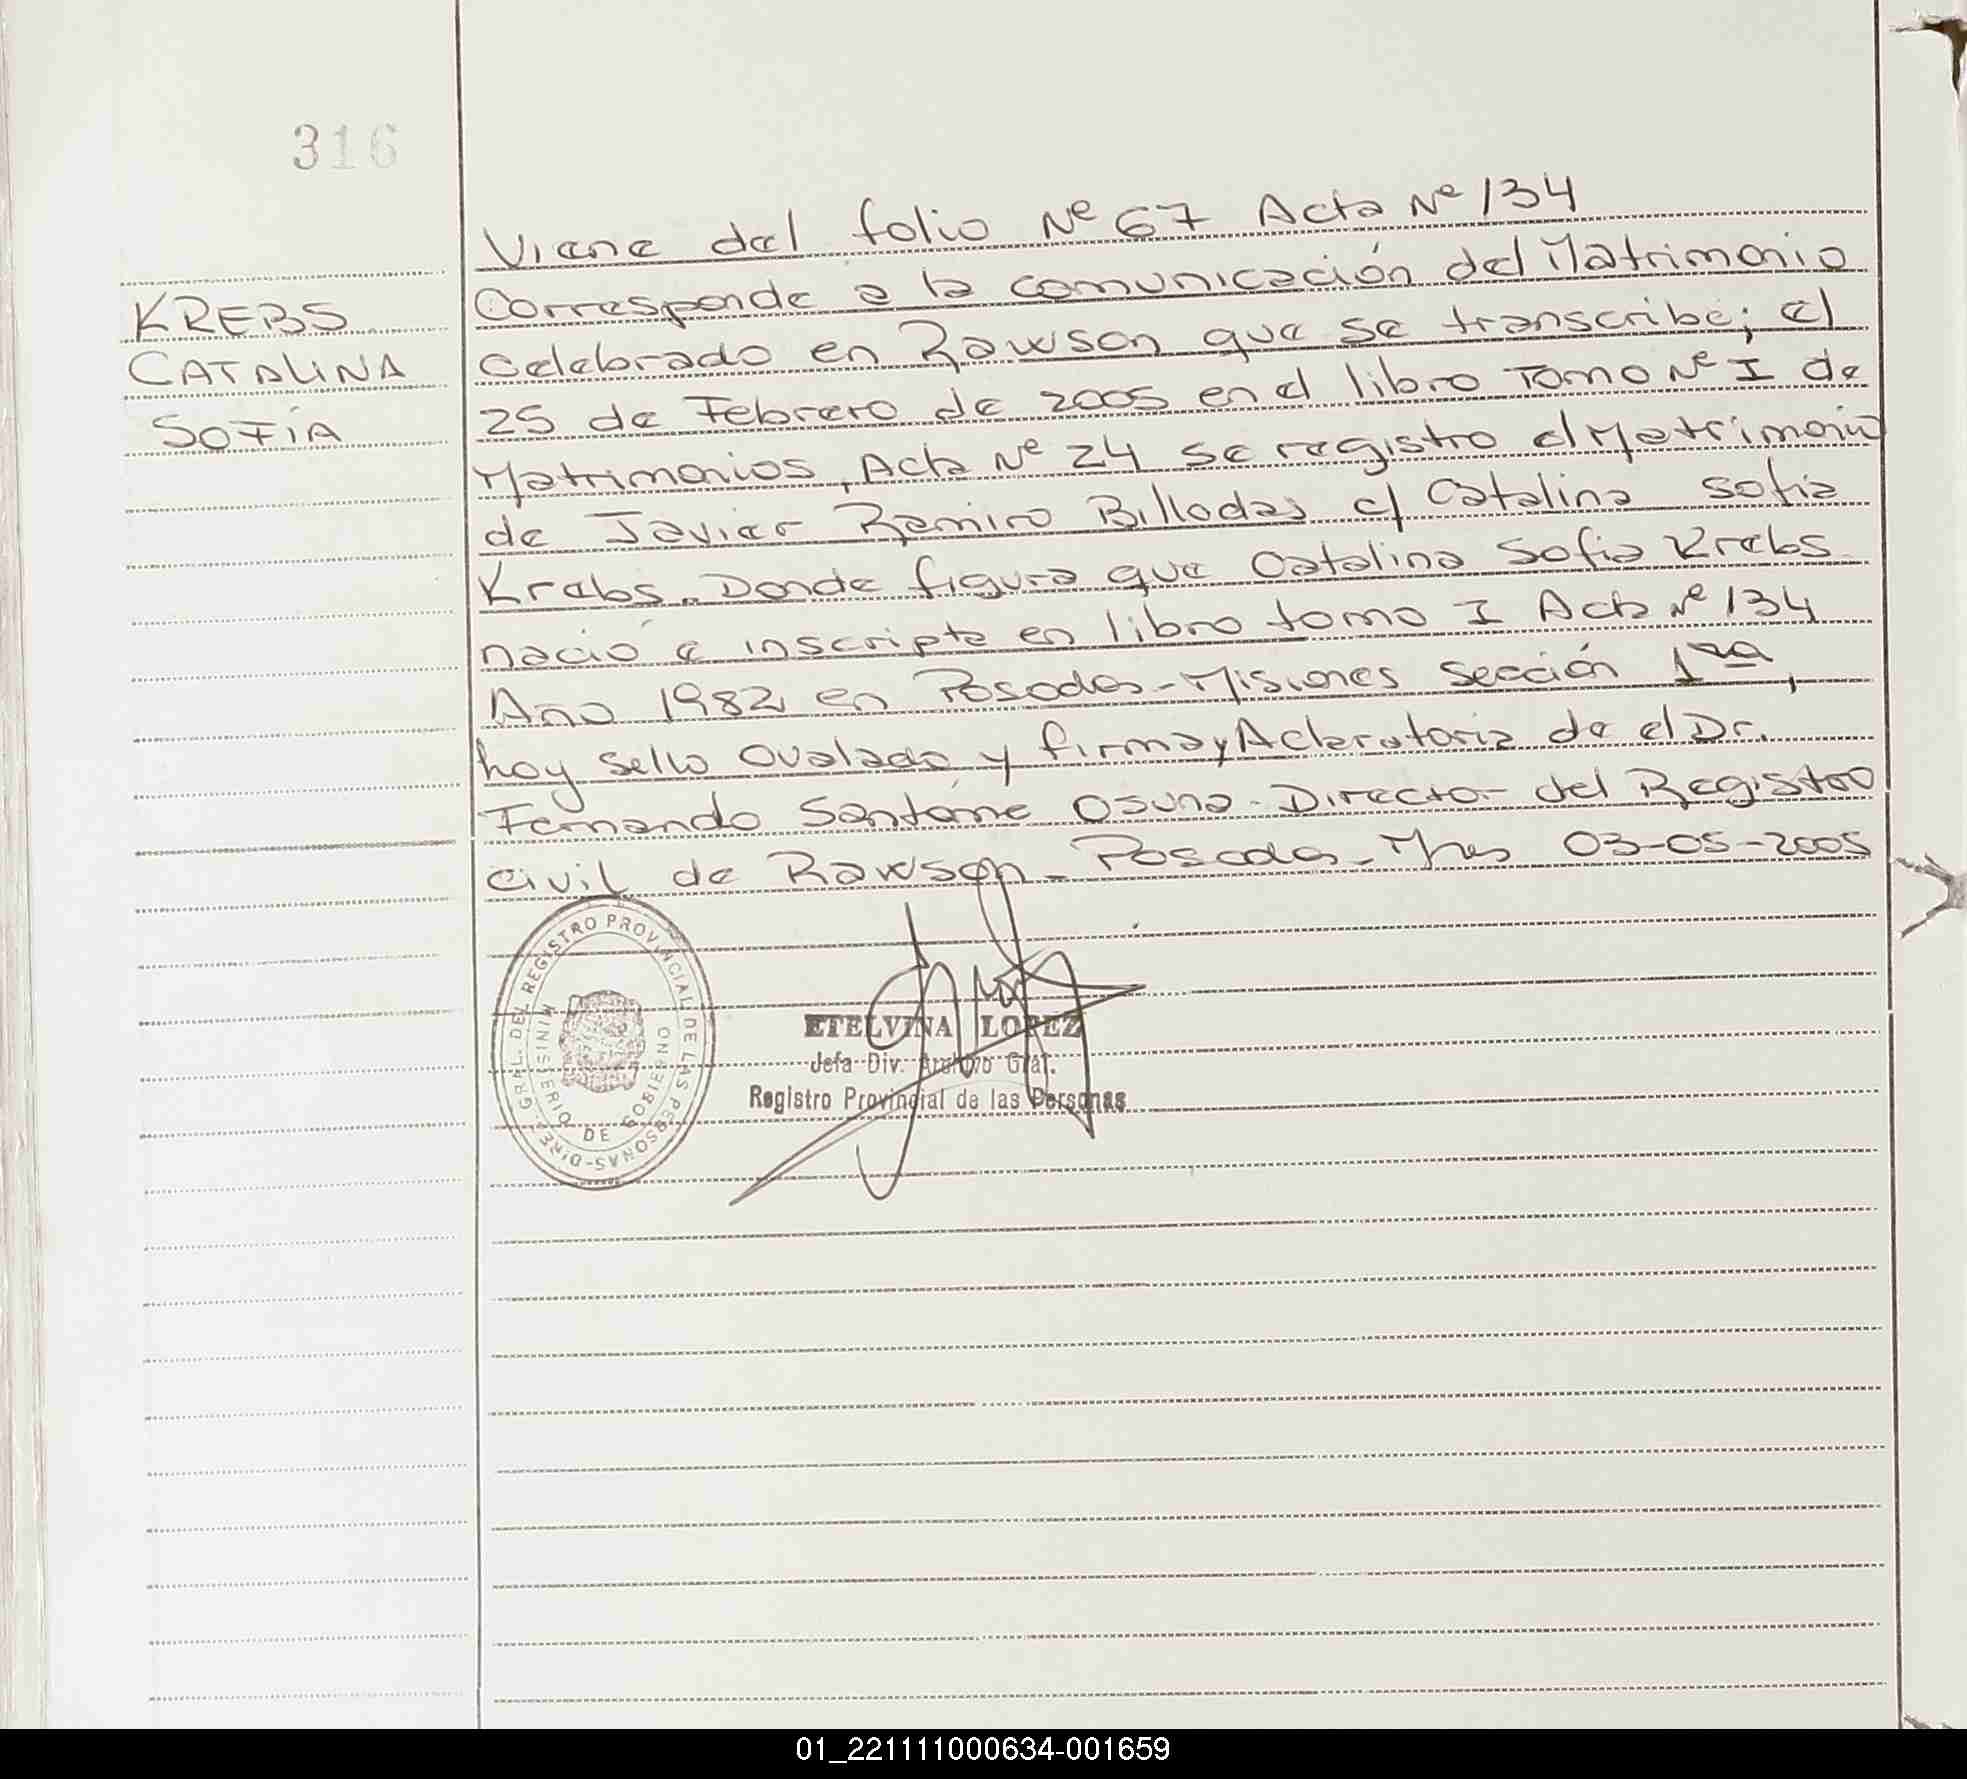 316
KREBS
CATALINA
SOFÍA
Viene del folio Nº 67 Acta Nº 134
Corresponde a la comunicación del Matrimonio
celebrado en Rawson que se transcribe; el
25 de Febrero de 2005 en el libro Tomo Nº I de
Matrimonios, Acta Nº 24 se registro el Matrimonio
de Javier Ramiro Billodas c/ Catalina Sofia
Krebs. Donde figura que Catalina Sofia Krebs
nació e inscripta en libro tomo I Acta Nº 134
Año 1982 en Posadas-Misiones Sección 1ra,
hay sello ovalado y firma y Acleratoria de el Dr.
Fernando Santome Osuna-Director del Registro
civil de Rawson- Posadas-Mnes 03-05-2005
DIREC. GRAL. DEL REGISTRO PROVINCIAL DE LAS PERSONAS-
MINISTERIO DE GOBIERNO
ETELVINA LOPEZ
Jefa Div. Archivo Gral.
Registro Provincial de las Personas
01_221111000634-001659